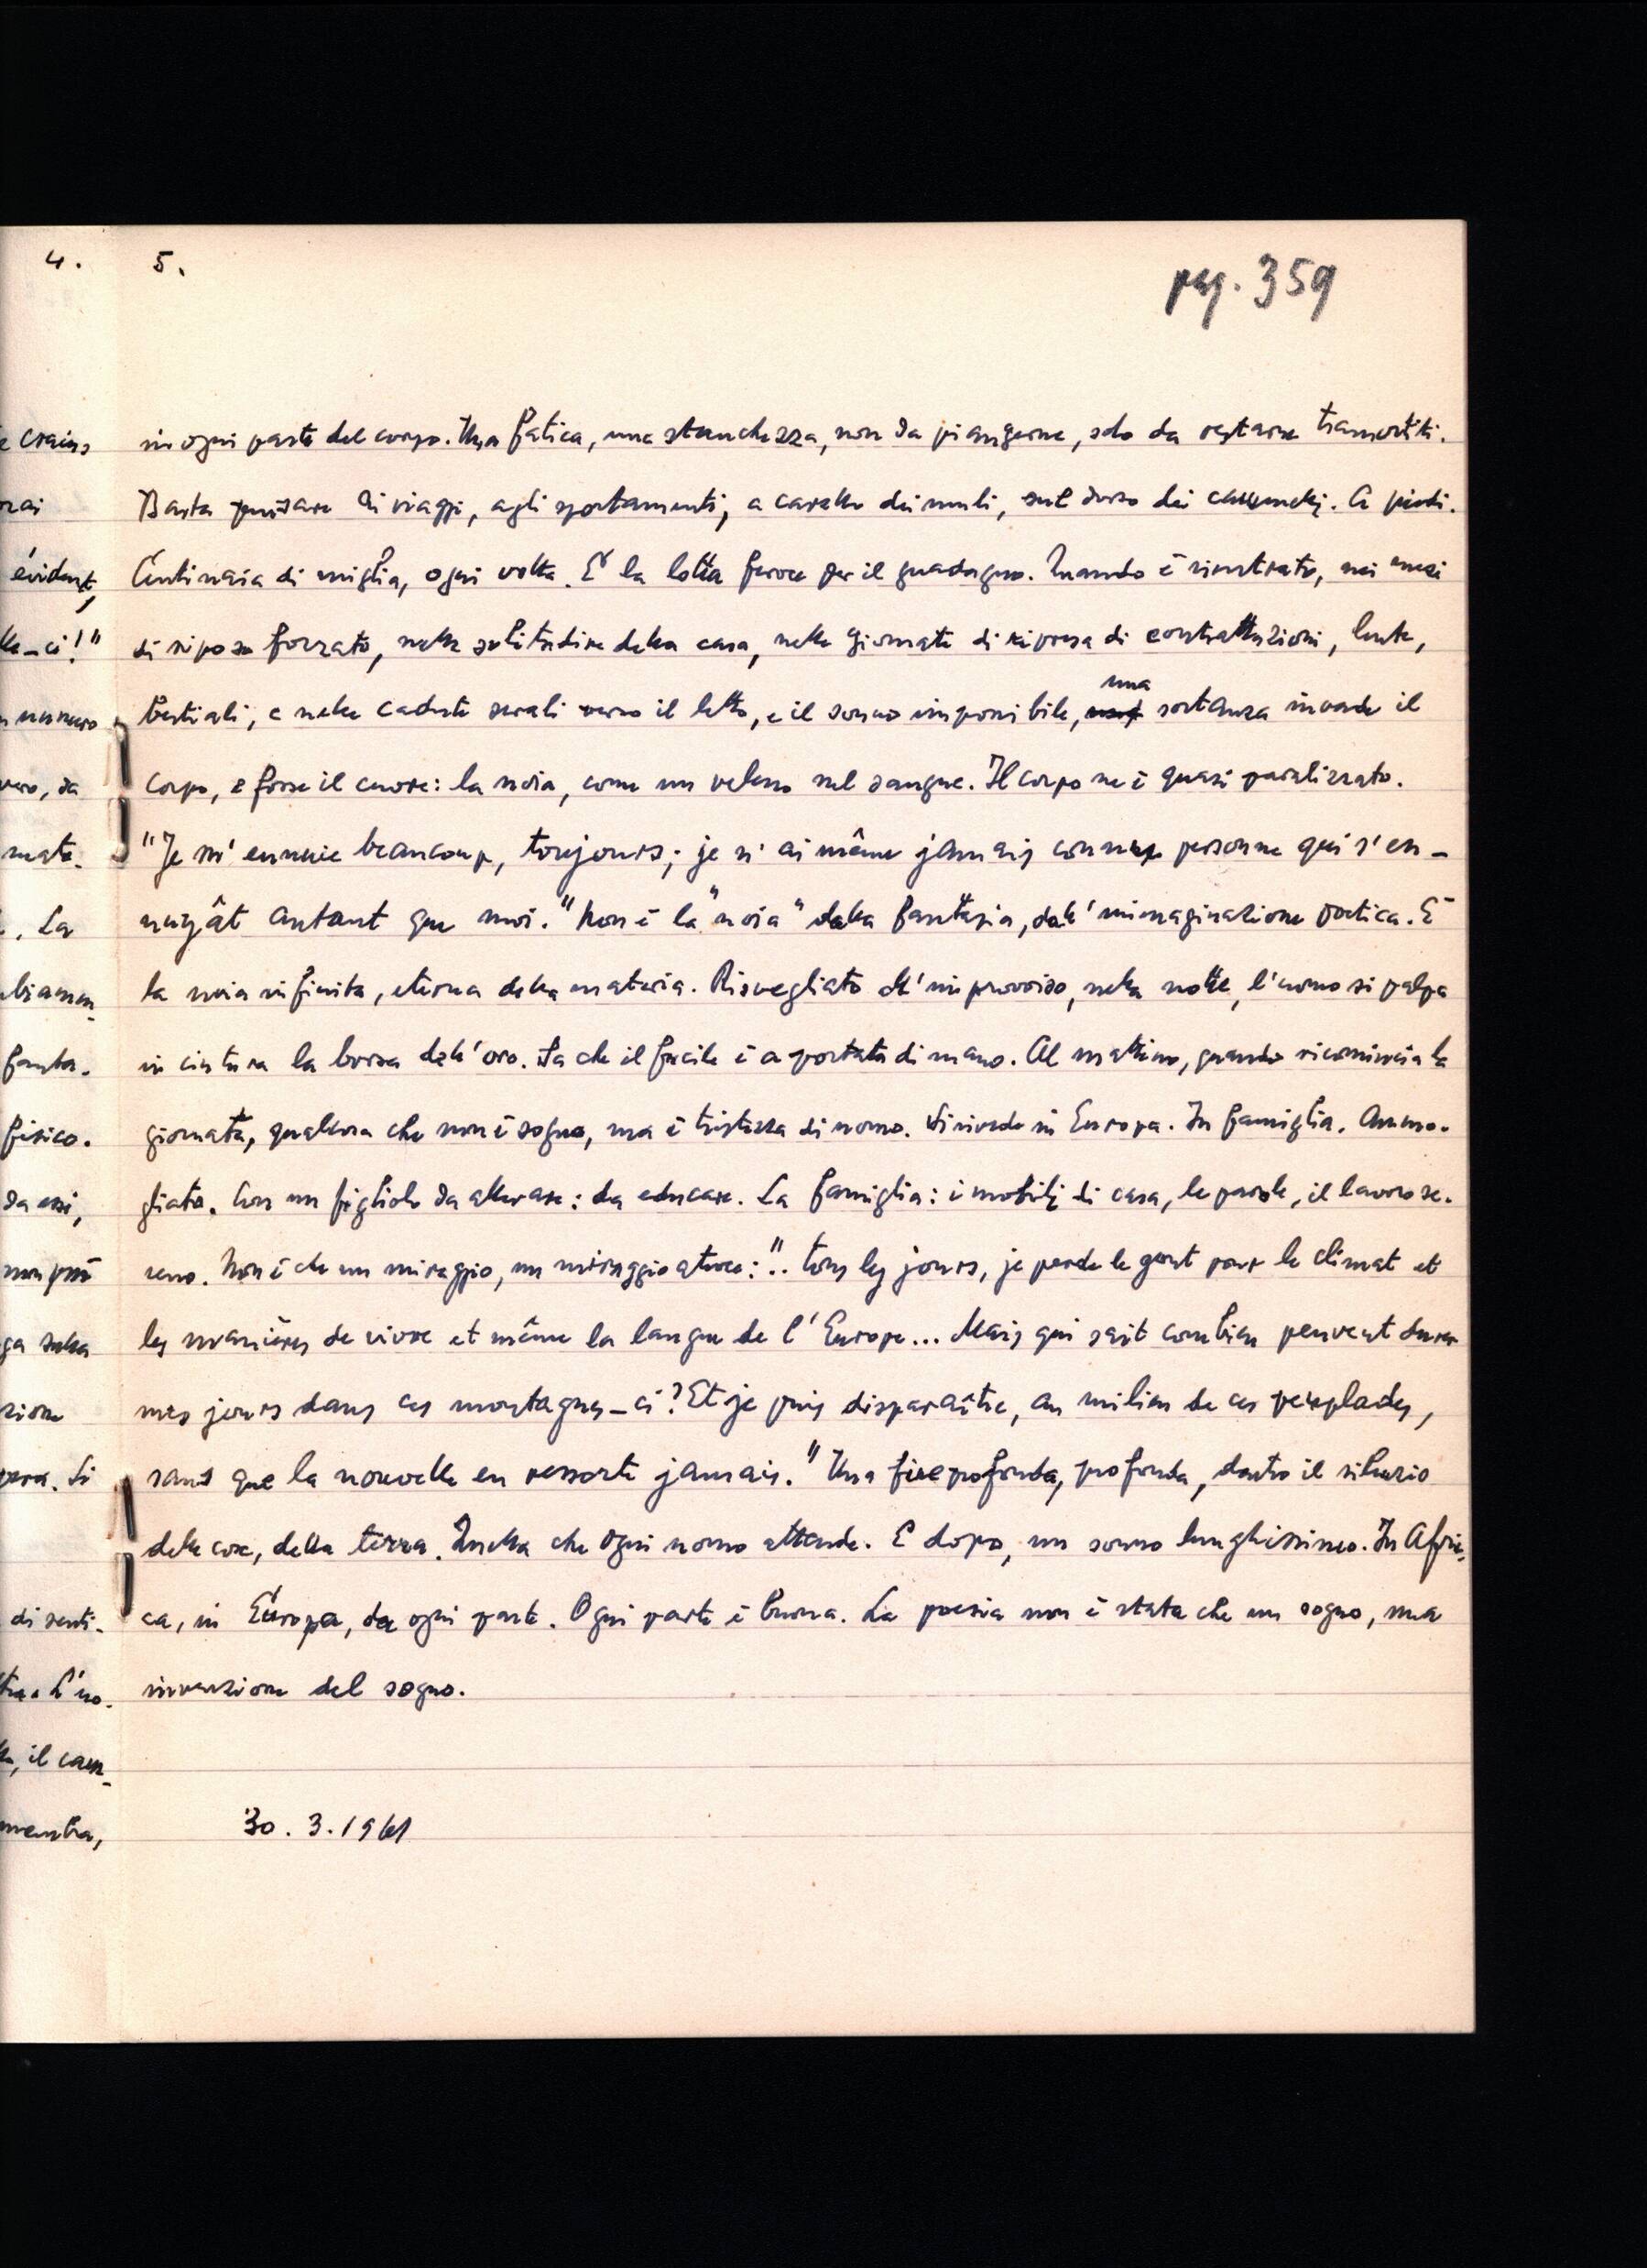 4.
e crains
rai
évident,
lle-ci!"
n numero
vero, da
mate.
. La
biamen-
fanta-
fisico.
da essi,
non può
ga sulla
zione
pera. Si
di senti-
tra. L'uo-
il cam-
mentra,
5.
pag. 359
in ogni parte del corpo. Una fatica, una stanchezza, non da piangerne, solo da restarne tramortiti.
Basta pensare ai viaggi, agli spostamenti, a cavallo dei muli, sul dorso dei cammelli. A piedi.
Centinaia di miglia, ogni volta. È la lotta feroce per il guadagno. Quando è rientrato, nei mesi
di riposo forzato, nella solitudine della casa, nelle giornate di ripresa di contrattazioni, lente,
bestiali, e nelle cadute serali verso il letto, e il sonno impossibile, una sostanza invade il
corpo, e forse il cuore: la noia, come un veleno nel sangue. Il corpo ne è quasi paralizzato.
"Je m'ennuie beaucoup, toujours; je n'ai même jamais connu personne qui s'en-
nuyât autant que moi." Non è la "noia" della fantasia, dell'immaginazione poetica. È
la noia infinita, eterna della materia. Risvegliato all'improvviso, nella notte, l'uomo si palpa
in cintura la borsa dell'oro. Sa che il fucile è a portata di mano. Al mattino, quando ricomincia la
giornata, qualcosa che non è sogno, ma è tristezza di uomo. Si rivede in Europa. In famiglia. Ammo-
gliato. Con un figliolo da allevare: da educare. La famiglia: i mobili di casa, le parole, il lavoro se-
reno. Non è che un miraggio, un miraggio atroce: ".. tous les jours, je perds le gout pour le climat et
les manières de vivre et même la langue de l'Europe... Mais qui sait combien peuvent durer
mes jours dans ces montagnes-ci? Et je puis disparaître, au milieu de ces peuplades,
sans que la nouvelle en ressorte jamais." Una fine profonda, profonda, dentro il silenzio
delle cose, della terra. Quella che ogni uomo attende. E dopo, un sonno lunghissimo. In Afri-
ca, in Europa, da ogni parte. Ogni parte è buona. La poesia non è stata che un sogno, una
invenzione del sogno.
30.3.1961